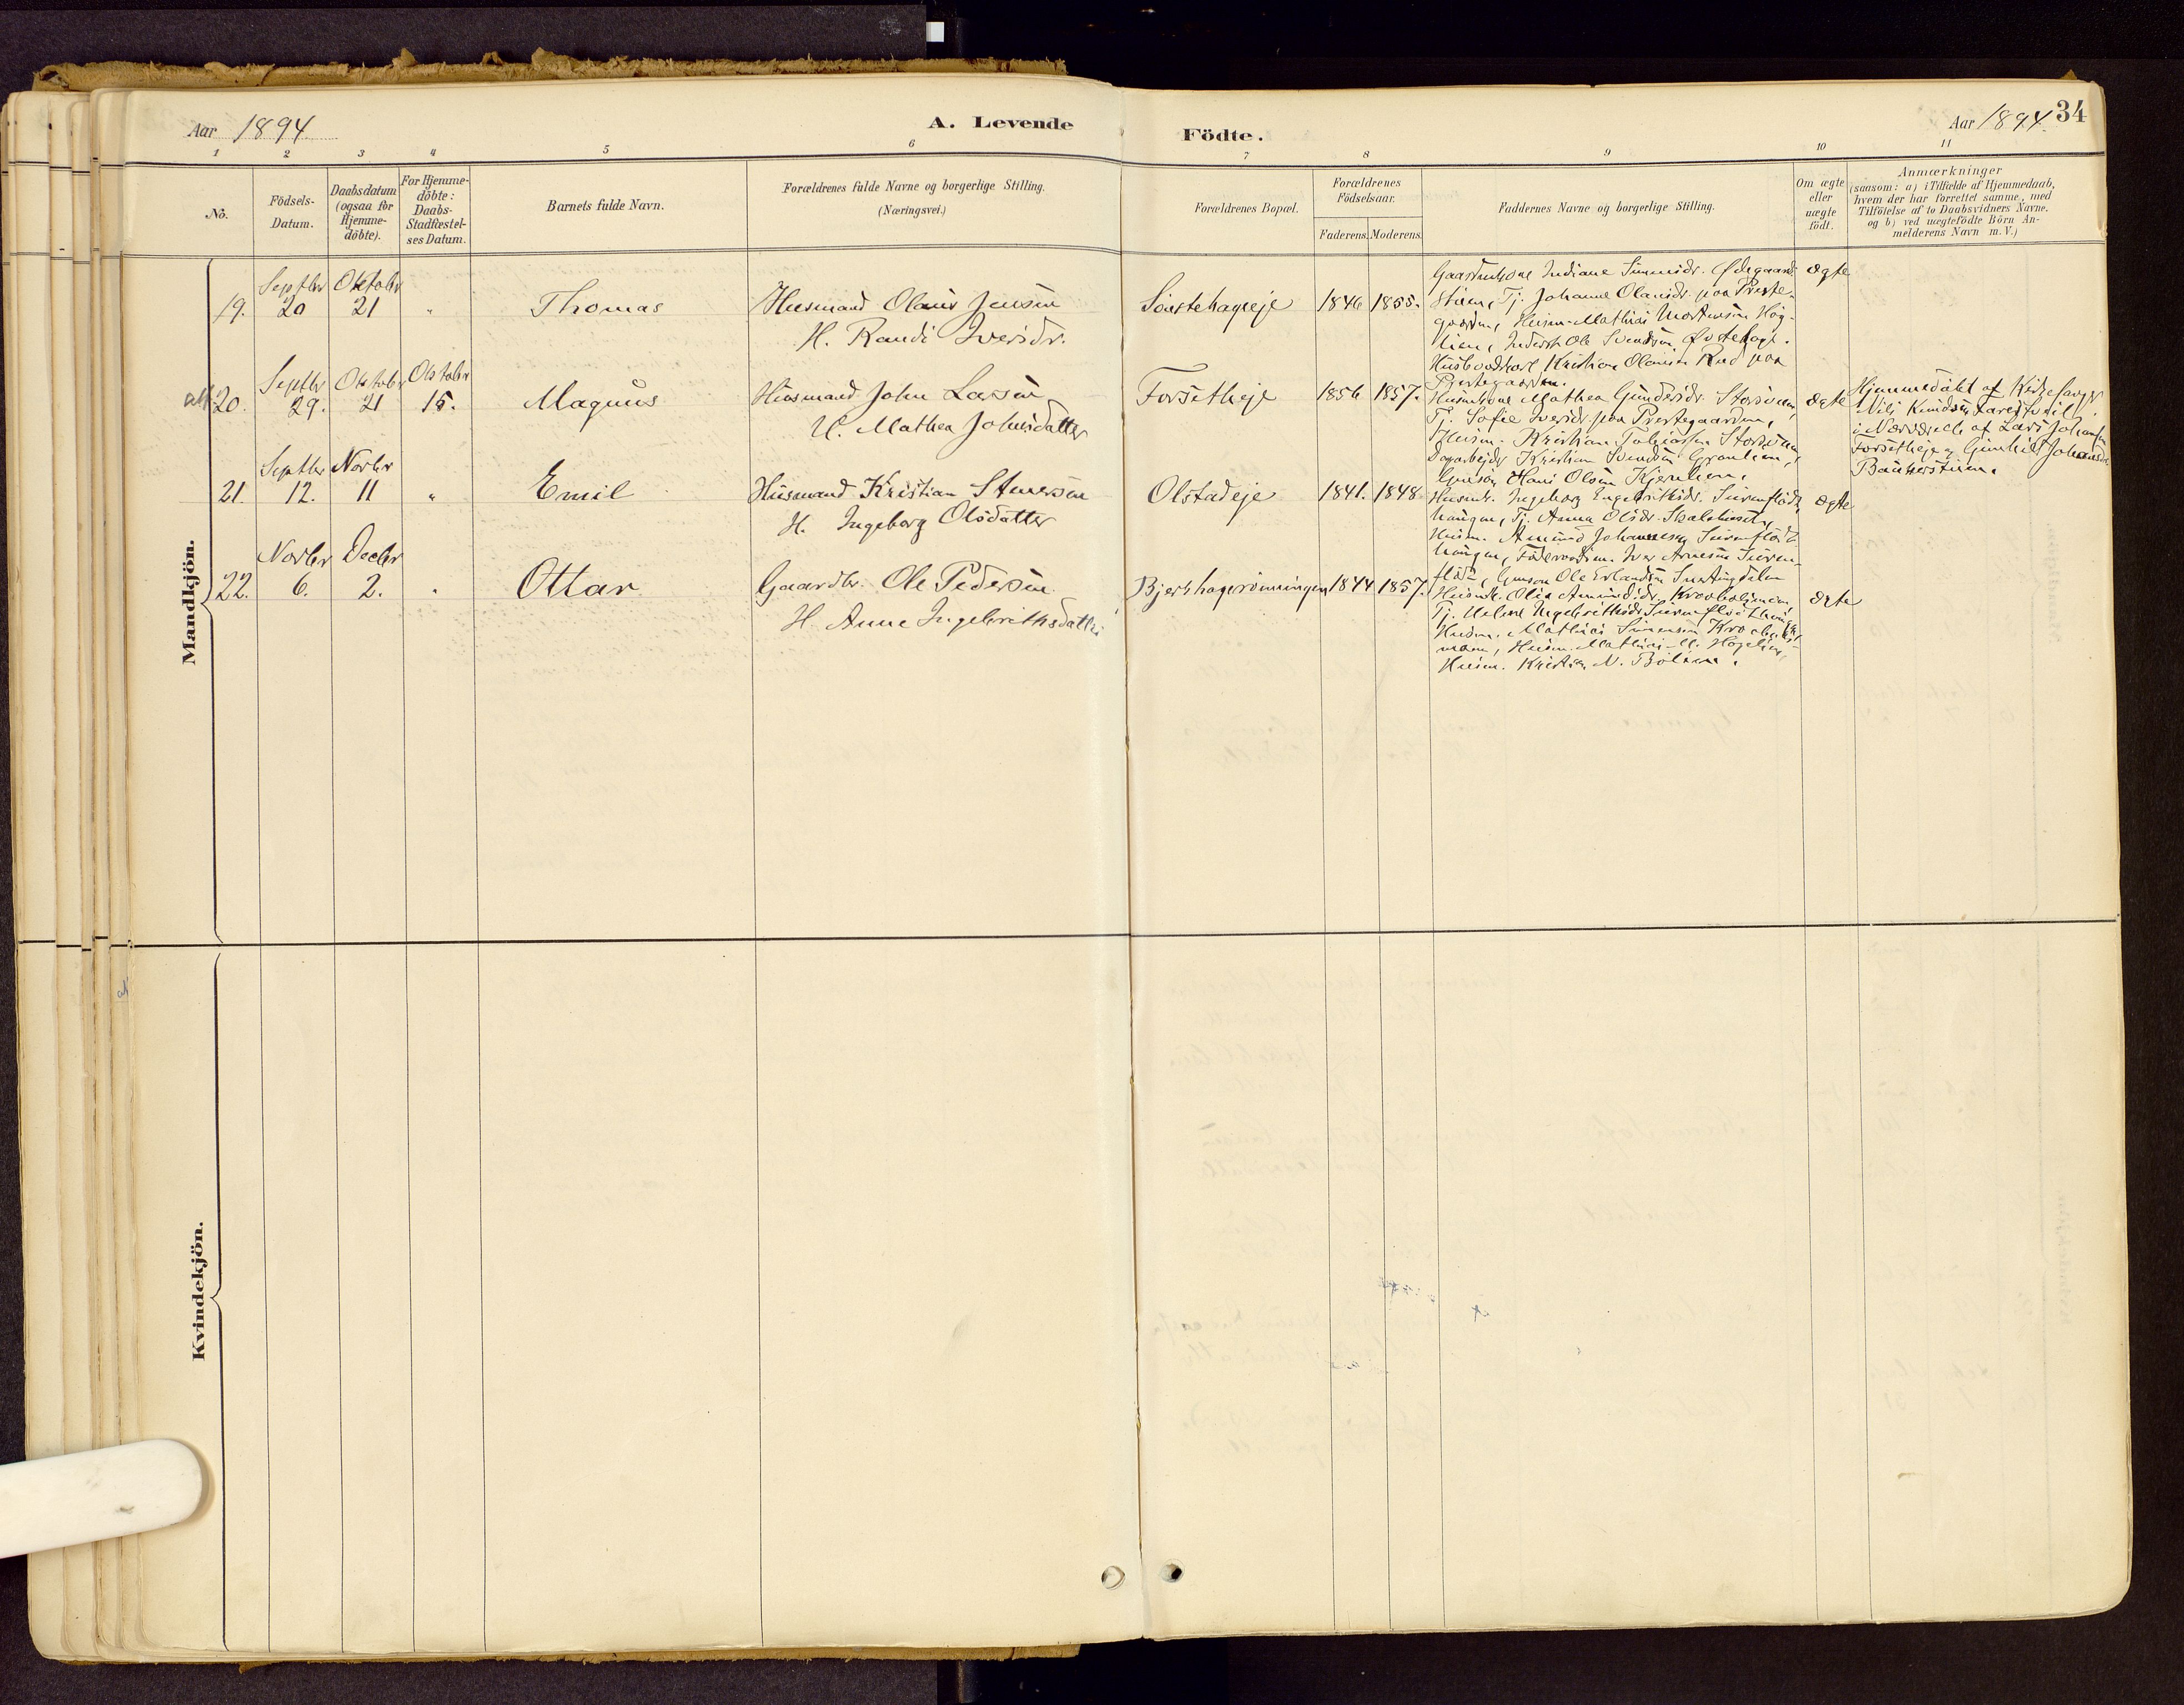 Aar 1894
A. Levende
Födte.
Aar 1894.
34
1
2
3
4
5
6
7
8
9
10
11
No.
Födsels-
Datum.
Daabsdatum
(ogsaa for
Hjemme-
döbte).
For Hjemme-
döbte:
Daabs-
Stadfæstel-
ses Datum.
Barnets fulde Navn.
Forældrenes fulde Navne og borgerlige Stilling.
(Næringsvei.)
Forældrenes Bopæl.
Forældrenes
Födselsaar.
Faderens.
Moderens.
Faddernes Navne og borgerlige Stilling.
Om ægte
eller
uægte
födt.
Anmærkninger
(saasom: a) i Tilfælde af Hjemmedaab,
hvem der har forrettet samme, med
Tilföielse af to Daabsvidners Navne.
og b) ved uægtefödte Börn An-
melderens Navn m. V.)
Mandkjön.
19.
Septbr
20
Oktober
21
"
Thomas
Husmand Olaus Jensen
H. Randi Iversdr.
Sönstehageeje
1846
1855.
Gaardmkone Indiane Simensdr. Ödegaard
stuen, Tj. Johanne Olausdr. paa Preste-
gaarden, Husm. Mathias Mortensen Hög-
lien, Inderst Ole Svendsen Östehage.
Husbondkarl Kristian Olausen Rud paa
Prestegaarden.
ægte
20.
Septbr
29.
Oktober
21
Oktober
15.
Magnus
Husmand John Larsen
H. Mathea Johnsdatter
Forsetheje
1856
1857.
Husmkone Mathea Gundersdr. Storsveen,
Tj. Sofie Iversdr. paa Prestegaarden,
Husm. Kristian Tobiassen Storsveen,
Dagarbejder Kristian Svendsen Granlien,
Ungson Hans Olsen Kjernlien.
ægte
Hjemmedöbt af Kirkesanger
Nils Knudsen
i Nærværelse af Lars Johansen
Forsetheje og Gunhild Johansdr
21.
Septbr
12.
Novbr
11
"
Emil
Husmand Kristian Simensen
H. Ingeborg Olsdatter
Olstadeje
1841.
1848
Husmk. Ingeborg Engebrithsdr. Surenflödt
haugen, Tj. Anna Olsdr. Skalshuset,
Husm. Amund Johannesen Surenflödt
haugen, Föderaadsm. Iver Arnesen Suren-
flödt, Ungson Ole Erlandsen
ægte
22.
Novbr
6.
Decbr
2.
"
Ottar
Gaardbr. Ole Pedersen
H. Anne Ingebrithsdatter
Bjerkhagerönningen
1844
1857.
Husmk. Olia Amundsdr. Krokbölmoen,
Tj. Helene Ingebrithsdr. Surenflödthaugen,
Husm. Mathias Simensen Krokböls-
moen, Husm. Mathias M. Höglien,
Husm. Kristian N. Bölien.
ægte
Kvindekjön.